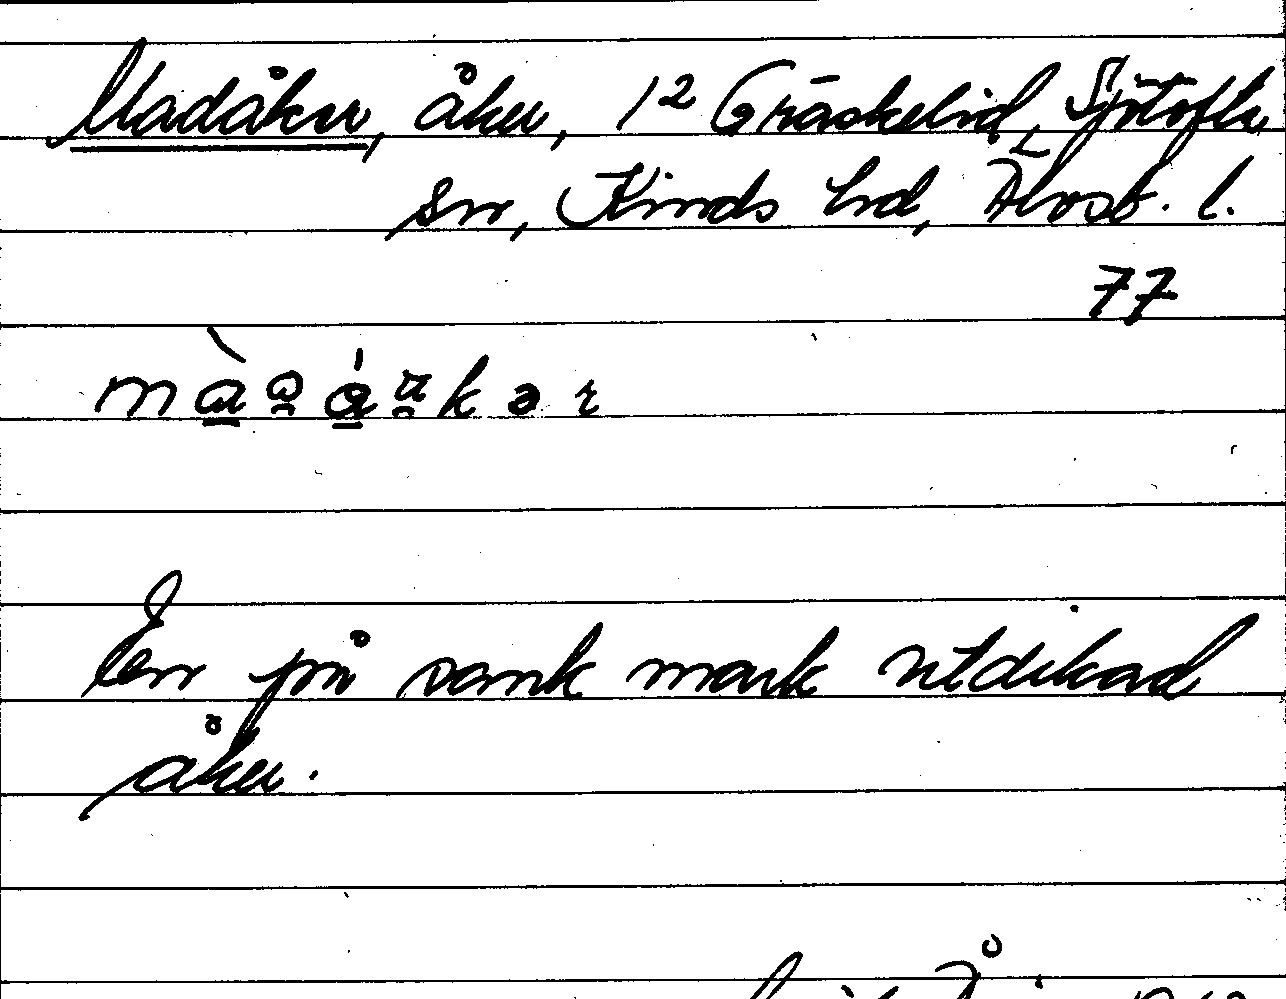 Madåker, åker, 1² Gräskelid, Sjötofta
sn, Kinds hd, Älvsb. l.
77
En på sank mark utdikad
åker.